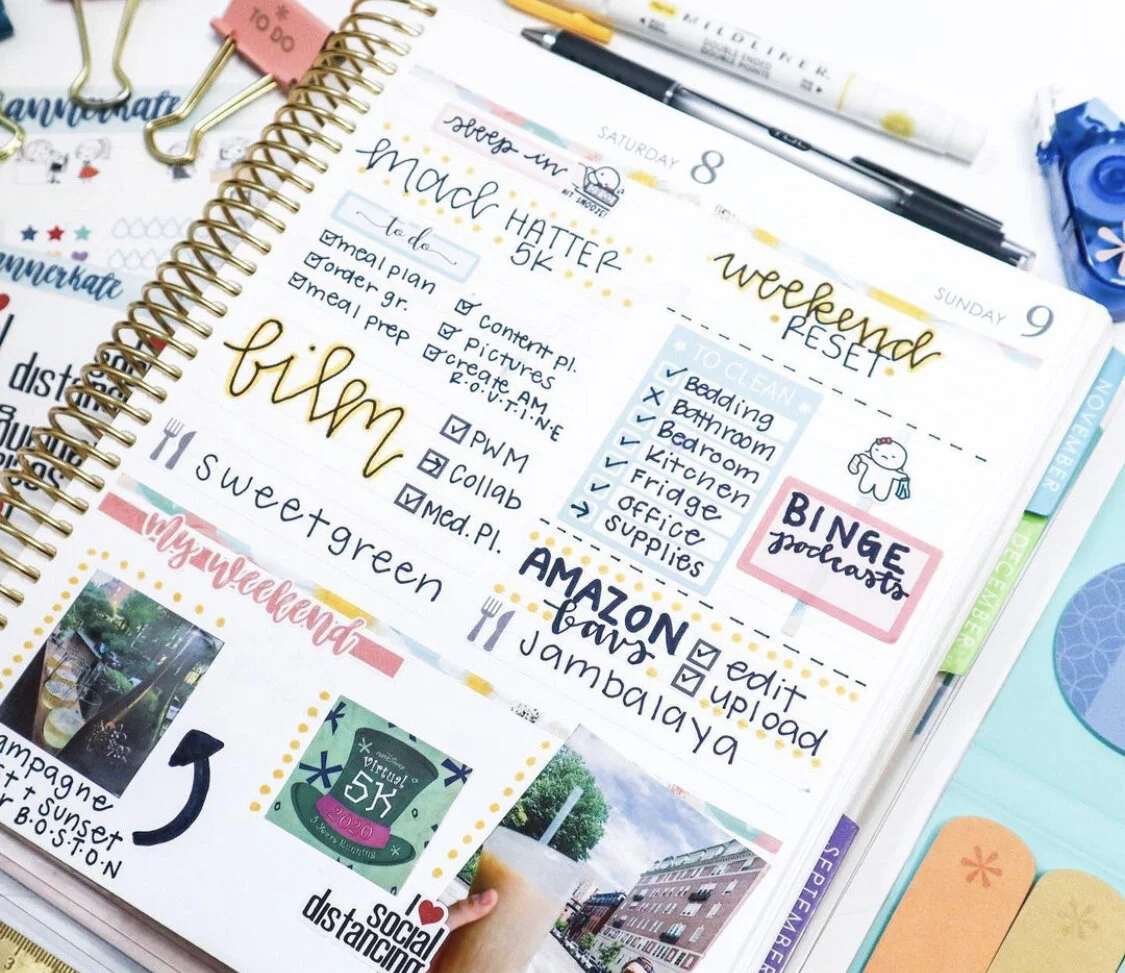 TO DO
MILDLINER
DOUBLE ENDED
DOUBLE POINTS
annerkate
annerkate
SATURDAY 8
sleep in
HIT SNOOZE!
mad HATTER
5K
to do
meal plan
order gr.
meal prep
content pl.
pictures
create AM
R·O·U·T·I·N·E
film
PWM
Collab
Med. Pl.
sweetgreen
SUNDAY 9
weekend
RESET
TO CLEAN
Bedding
Bathroom
Bedroom
Kitchen
Fridge
office
supplies
BINGE
podcasts
AMAZON
favs
edit
upload
Jambalaya
my weekend
ampagne
+ sunset
B·O·S·T·O·N
virtual
5K
2020
5 Years Running
I
social
distancing
NOVEMBER
DECEMBER
SEPTEMBER
3